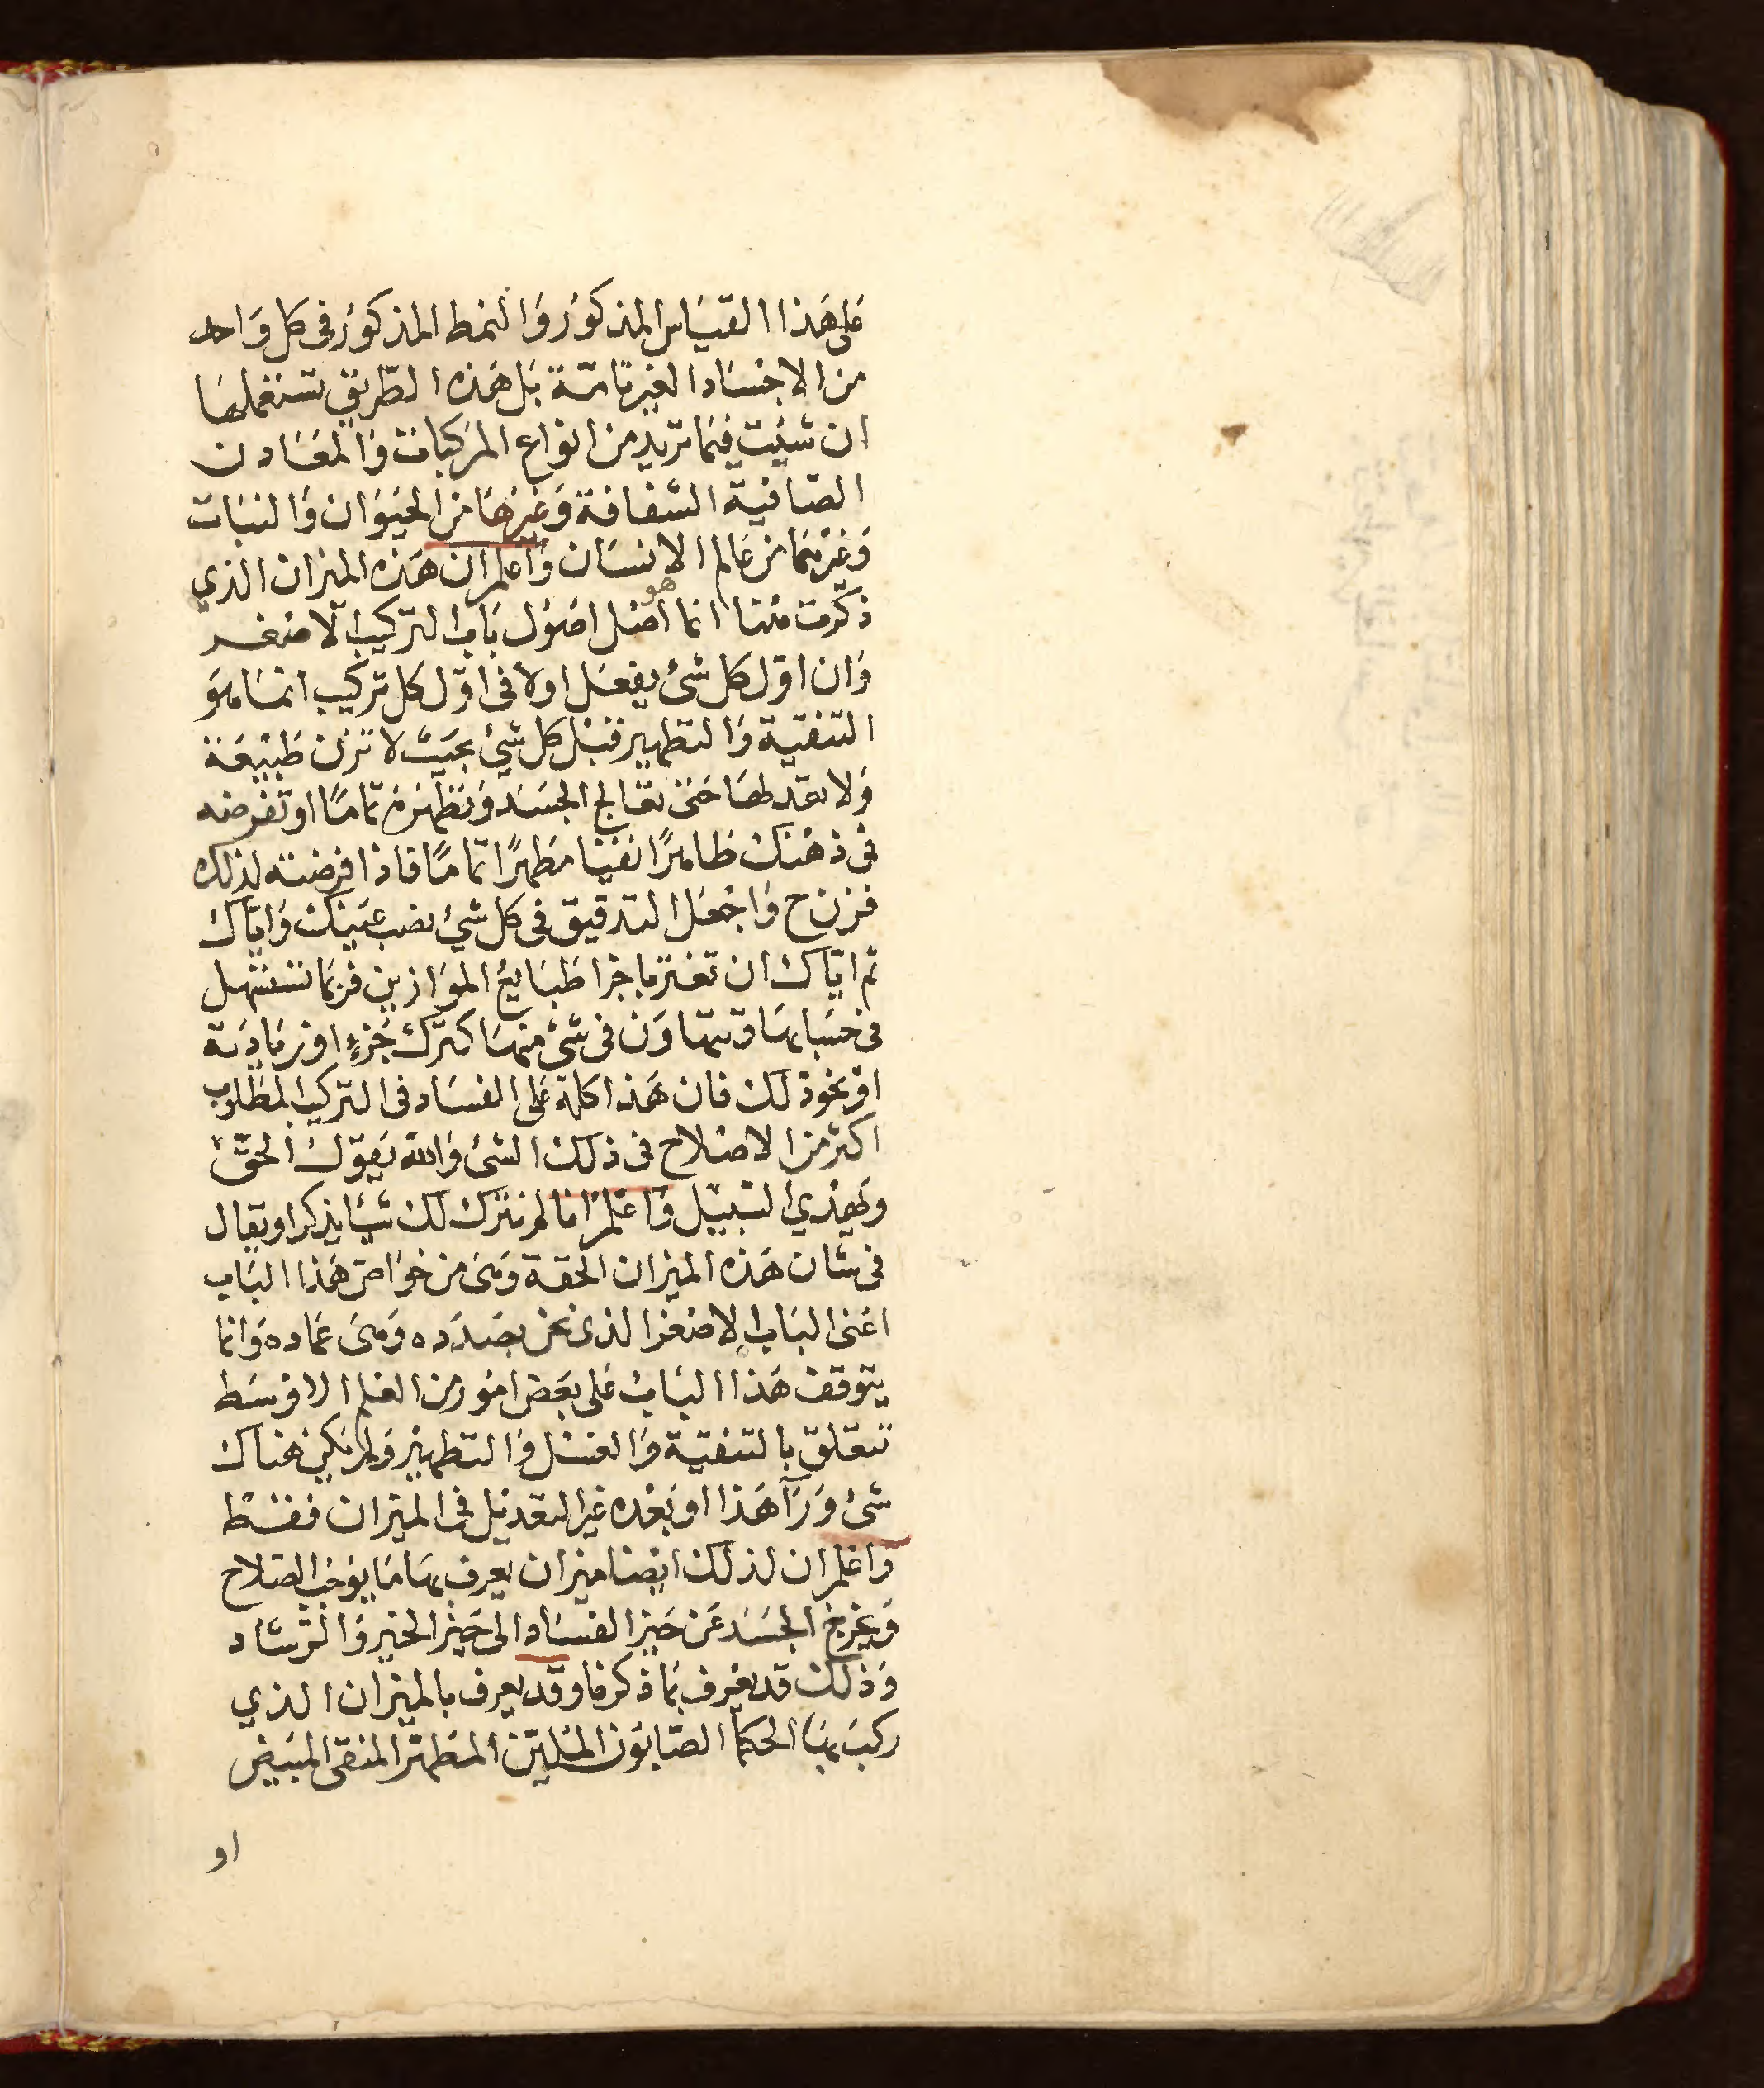 على هذا القياس المذكور والنمط المذكور في كل واحد
من الاجساد الغير تامة بل هذه الطريق تستعملها
ان شئت فيما تريد من انواع المركبات والمعادن
الصافية الشفافة وغيرها من الحيوان والنبات
وغيرهما من عالم الانسان واعلم ان هذه الميزان الذي
ذكرت هنا انما هو اصل اصول باب التركيب الاصغر
وان اول كل شئ يفعل اولا في اول كل تركيب انما هو
التنقية والتطهير قبل كل شئ بحيث لا تزن طبيعة
ولا تعدلها حتى تعالج الجسد وتطهره تاما او تفرضه
في ذهنك طاهرا نقيا مطهرا تاما فاذا فرضته لذلك
فزن ح واجعل التدقيق في كل شئ نصب عينك واياك
ثم اياك ان تغتر باجزا طبايع الموازين فربما تستسهل
في حسابها وتتهاون في شئ منها كترك جزء او زيادته
او نحو ذلك فان هذا كله على الفساد في التركيب المطلوب
اكثر من الاصلاح في ذلك الشئ والله يقول الحق
ويهدي السبيل واعلم انا لم نترك لك شيئا يذكر او يقال
في شان هذه الميزان الحقة وهى من خواص هذا الباب
اعنى الباب الاصغر الذي نحن بصدده وهى عماده وانما
يتوقف هذا الباب على بعض امور من العلم الاوسط
تتعلق بالتنقية والغسل والتطهير ولم يكن هناك
شئ ورآ هذا او بعده غير التعديل في الميزان فقط
واعلم ان لذلك ايضا ميزان يعرف بها ما يوجب الصلاح
ويخرج الجسد عن حيز الفساد الى حيز الخير والرشاد
وذلك قد يعرف بما ذكرنا وقد يعرف بالميزان الذي
ركب بها الحكما الصابون الملين المطهر المنقى المبيض
او